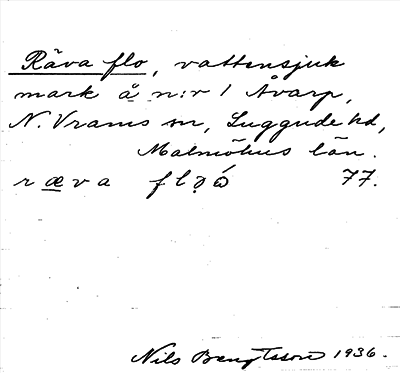 Räva flo, vattensjuk
mark å n:r 1 Åvarp,
N. Vrams sn, Luggude hd,
Malmöhus län.
ræva flǫó 77.
Nils Bengtsson 1936.